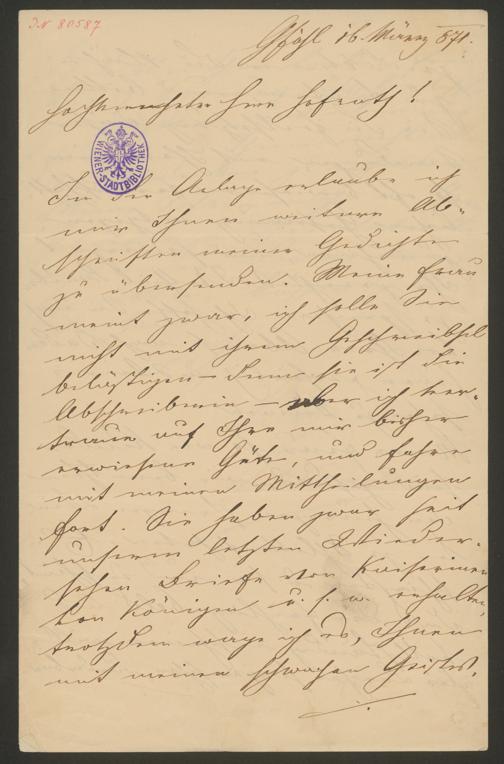 I.N 80587
Gföhl 16. März 871.
Hochverehrter Herr Hofrath!
WIENER-STADTBIBLIOTHEK
In der Anlage erlaube ich
mir Ihnen weitere Ab-
schriften meiner Gedichte
zu übersenden. Meine Frau
meint zwar, ich solle Sie
nicht mit ihrem Geschreibsel
belästigen – denn sie ist die
Abschreiberin – aber ich ver-
traue auf Ihre mir bisher
erwiesene Güte, und fahre
mit meinen Mittheilungen
fort. Sie haben zwar seit
unserem letzten Wieder-
sehen Briefe von Kaiserinen
von Königen u. s. w. erhalten,
trotzdem wage ich es, Ihnen
mit meinen schwachen Geistes-